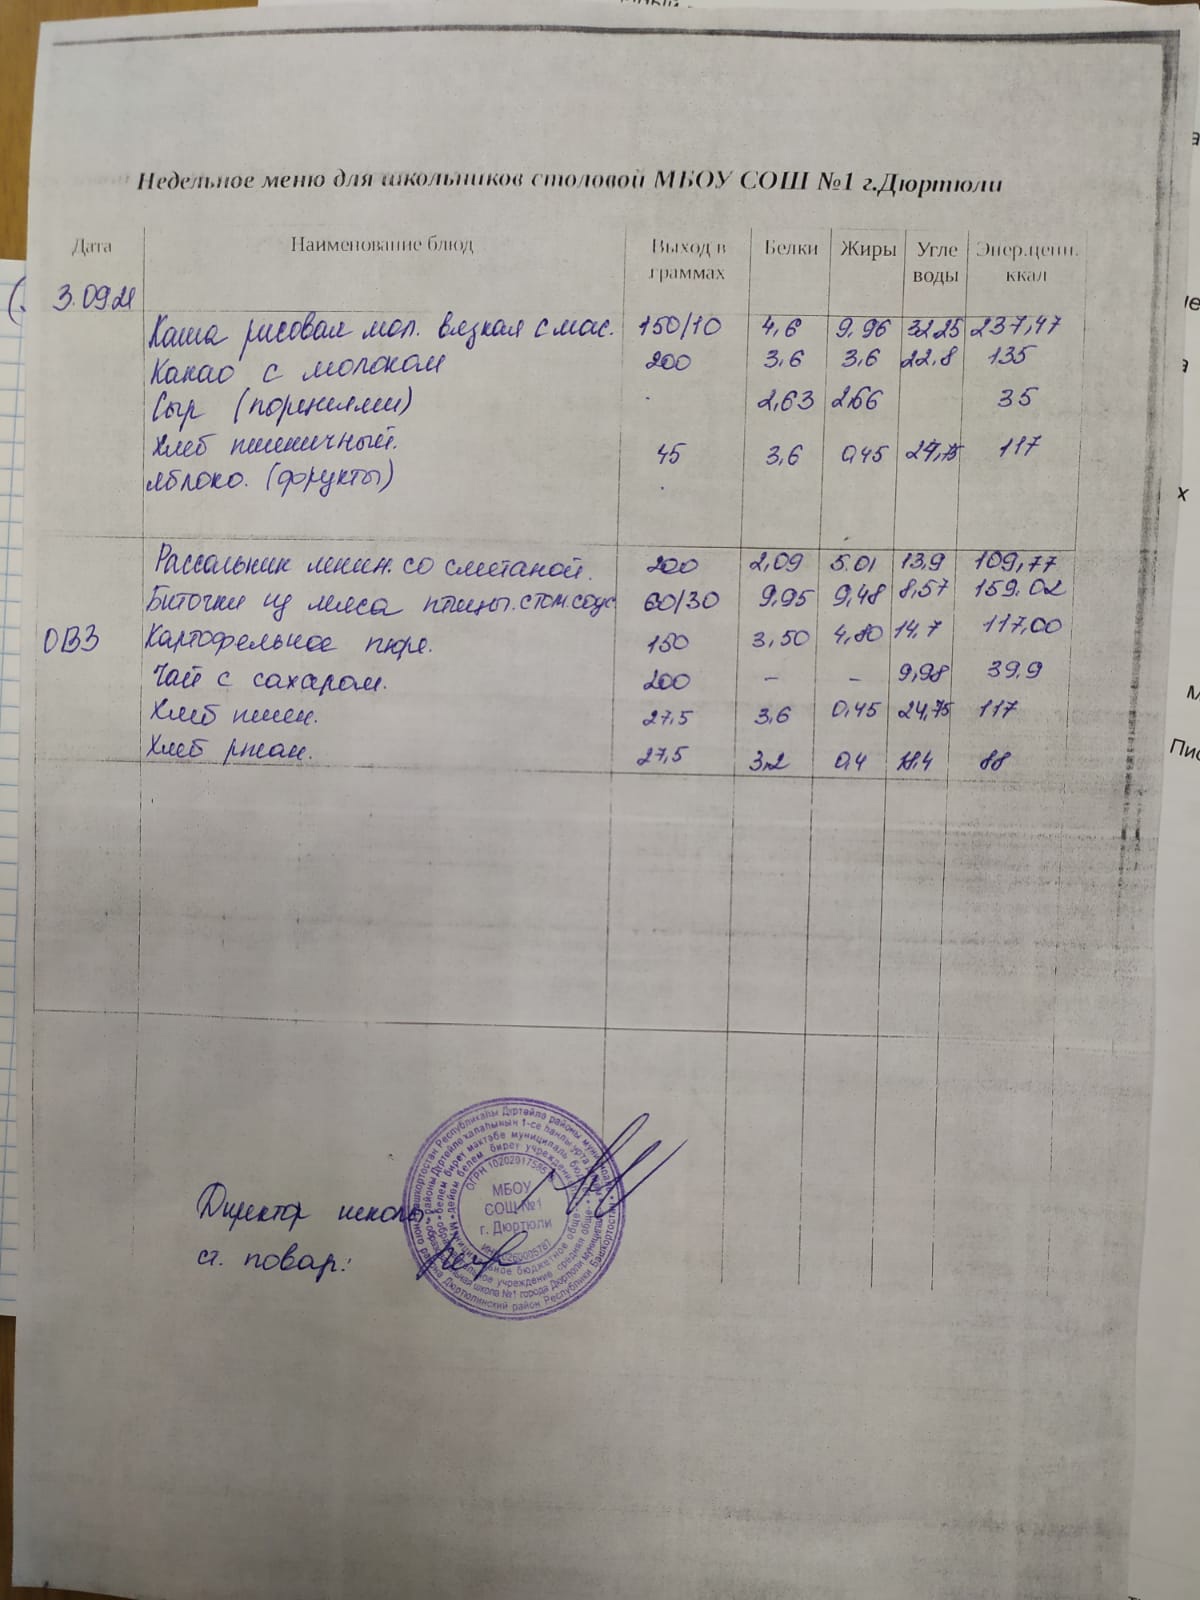 Недельное меню для школьников столовой МБОУ СОШ №1 г.Дюртюли
Дата Наименование блюд Выход в граммах Белки Жиры Угле воды Энер.ценн. ккал
3.09.21
Каша рисовая мол. вязкая с мас. 150/10 4,6 9,96 32,25 237,47
Какао с молоком 200 3,6 3,6 22,8 135
Сыр (порциями) 2,63 2,66 35
Хлеб пшеничный. 45 3,6 0,45 24,75 117
Яблоко. (фрукты)
Рассольник ленин. со сметаной. 200 2,09 5.01 13,9 109,77
Биточки из мяса птицы. с том.соус 60/30 9,95 9,48 8,57 159.02
ОВЗ Картофельное пюре. 150 3,50 4,80 14.7 117,00
Чай с сахаром. 200 – – 9,98 39.9
Хлеб пшен. 27.5 3,6 0,45 24,75 117
Хлеб ржан. 27,5 3.2 0,4 18.4 88
Директор школы
ст. повар:
МБОУ
СОШ №1
г. Дюртюли